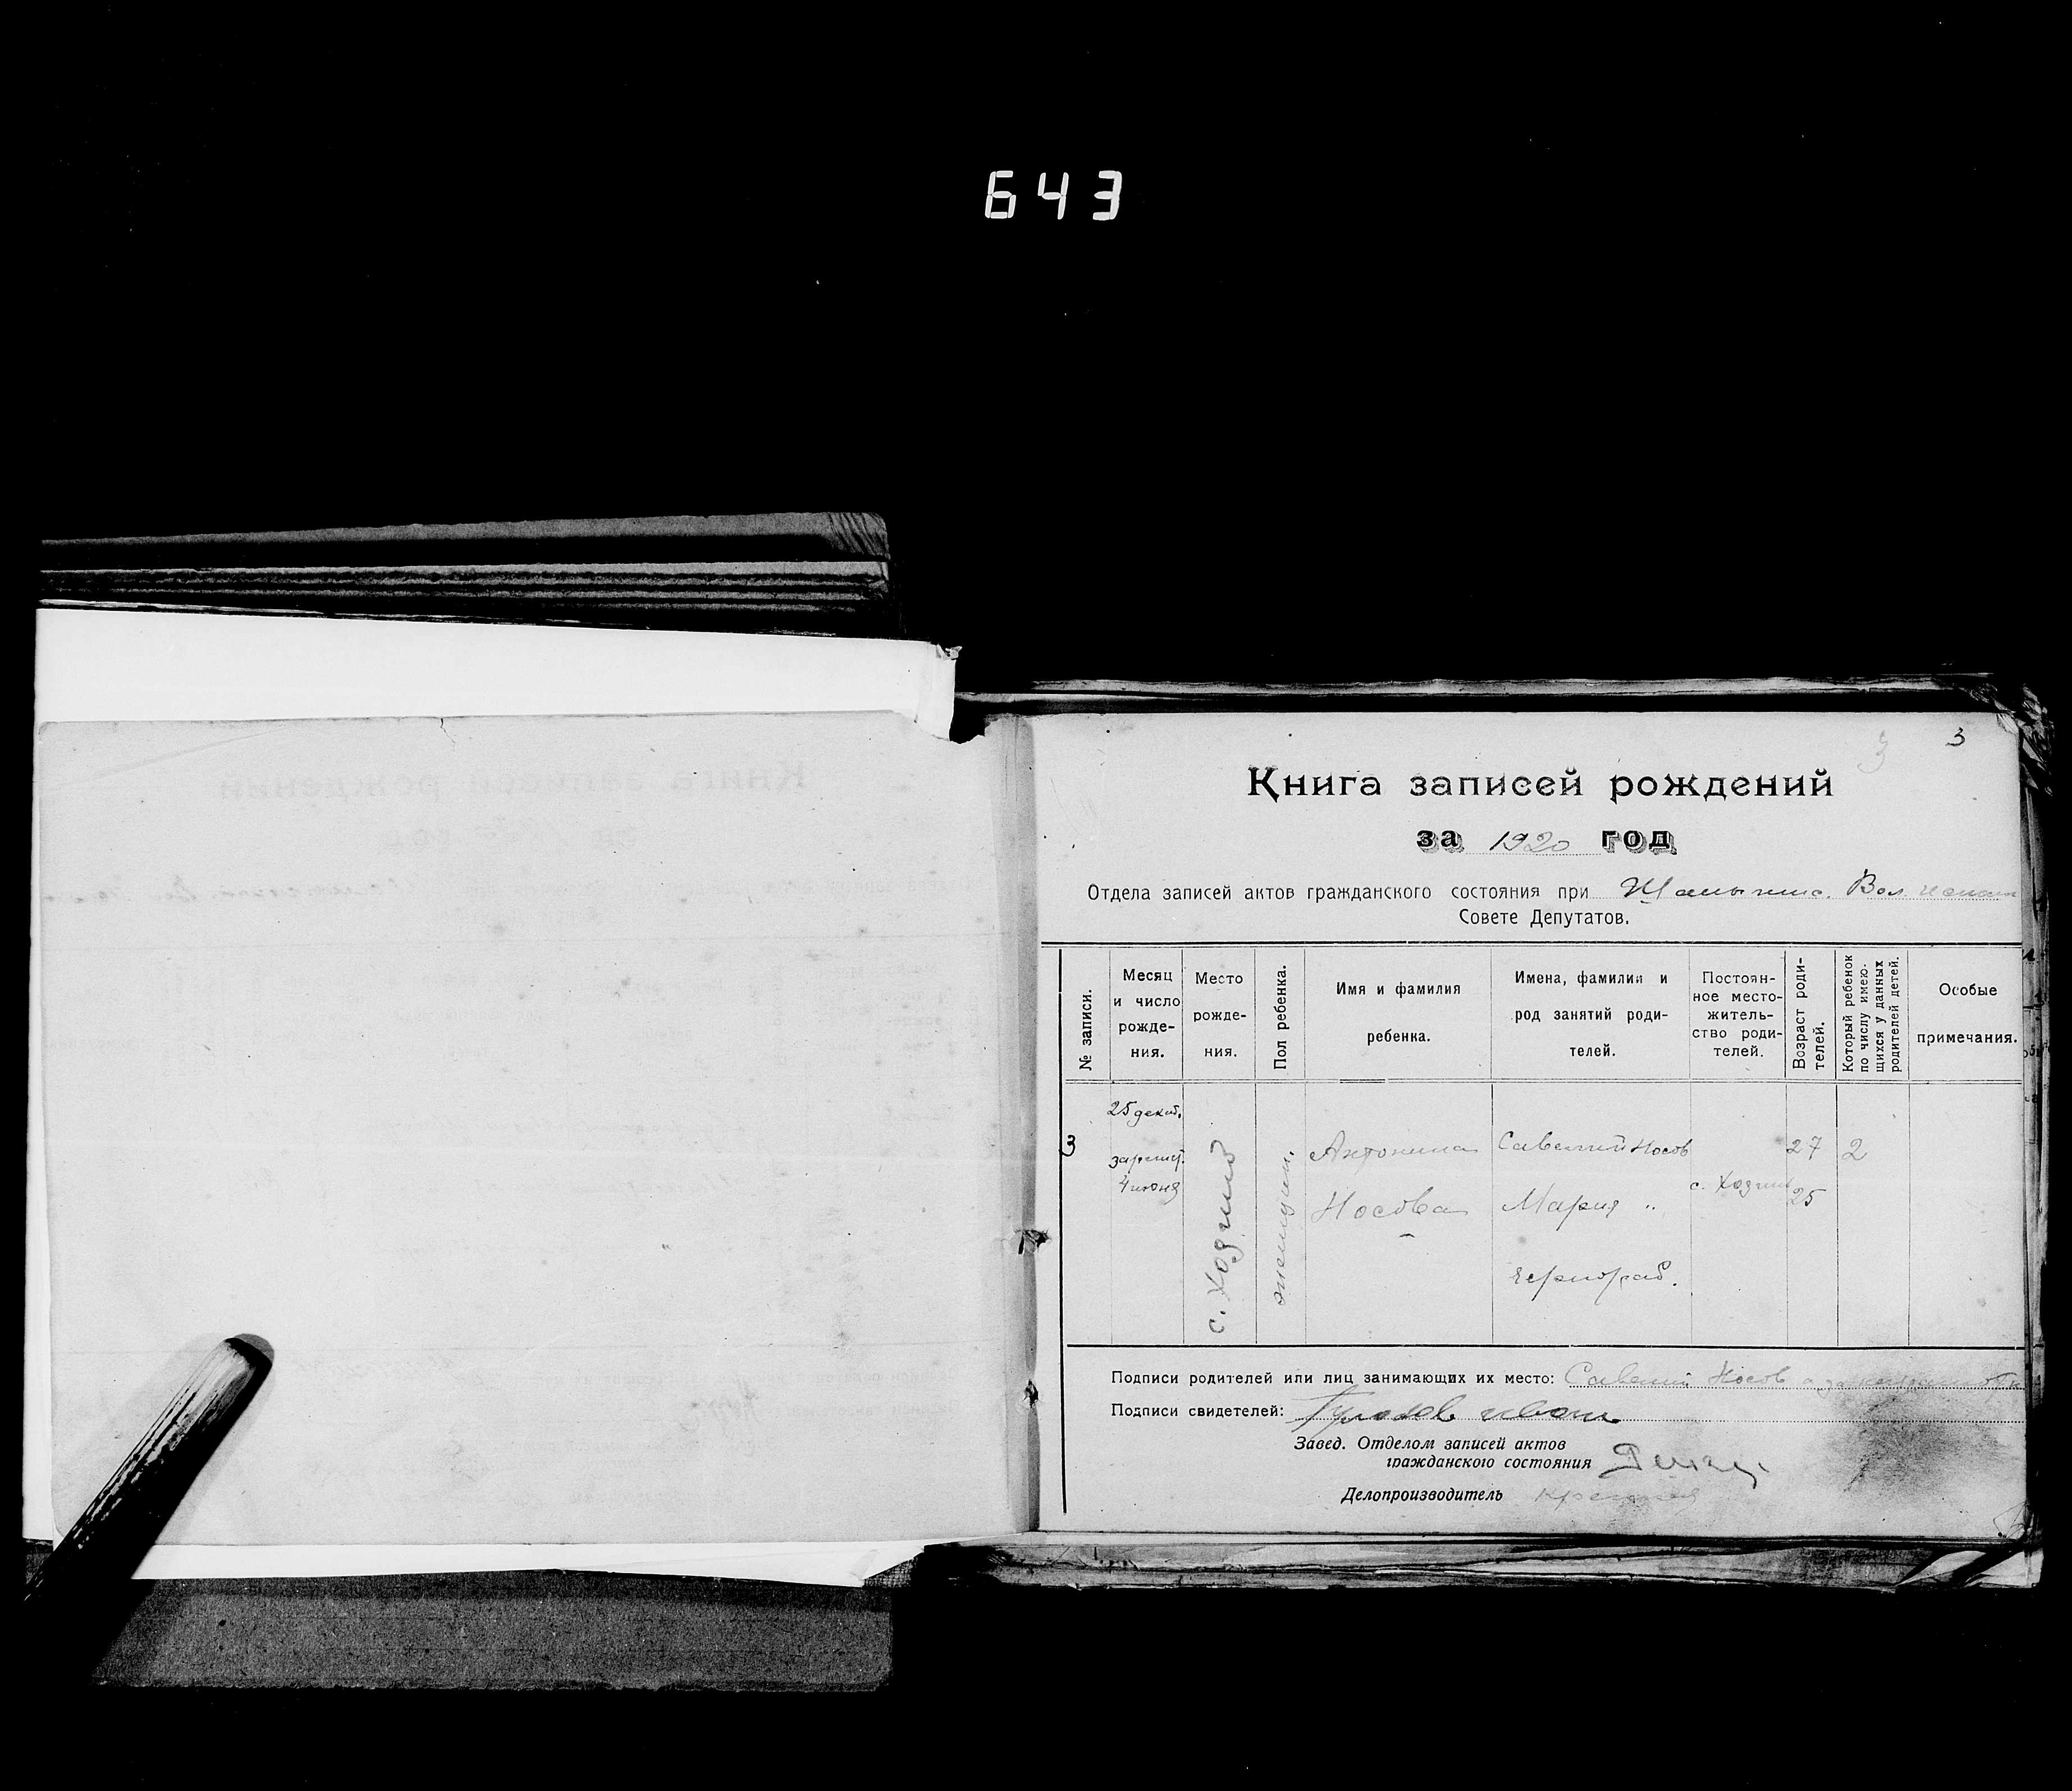 643
3
3
Книга записей рождений
за 1920 год
Отдела записей актов гражданского состояния при Вол.
Совете Депутатов.
№ записи.
Месяц и число рожде- ния.
Место рожде- ния.
Пол ребенка.
Имя и фамилия ребенка.
Имена, фамилии и род занятий роди- телей.
Постоян- ное место- житель- ство роди- телей.
Возраст роди- телей.
Который ребенок по числу имею- щихся у данных родителей детей.
Особые примечания.
3
25 декаб.
4 июня
Антонина
Носова
Савелий Носов
Мария "
чернораб.
27
25
2
Подписи родителей или лиц занимающих их место: Савелий Носов
Подписи свидетелей:
Завед. Отделом записей актов
гражданского состояния
Делопроизводитель